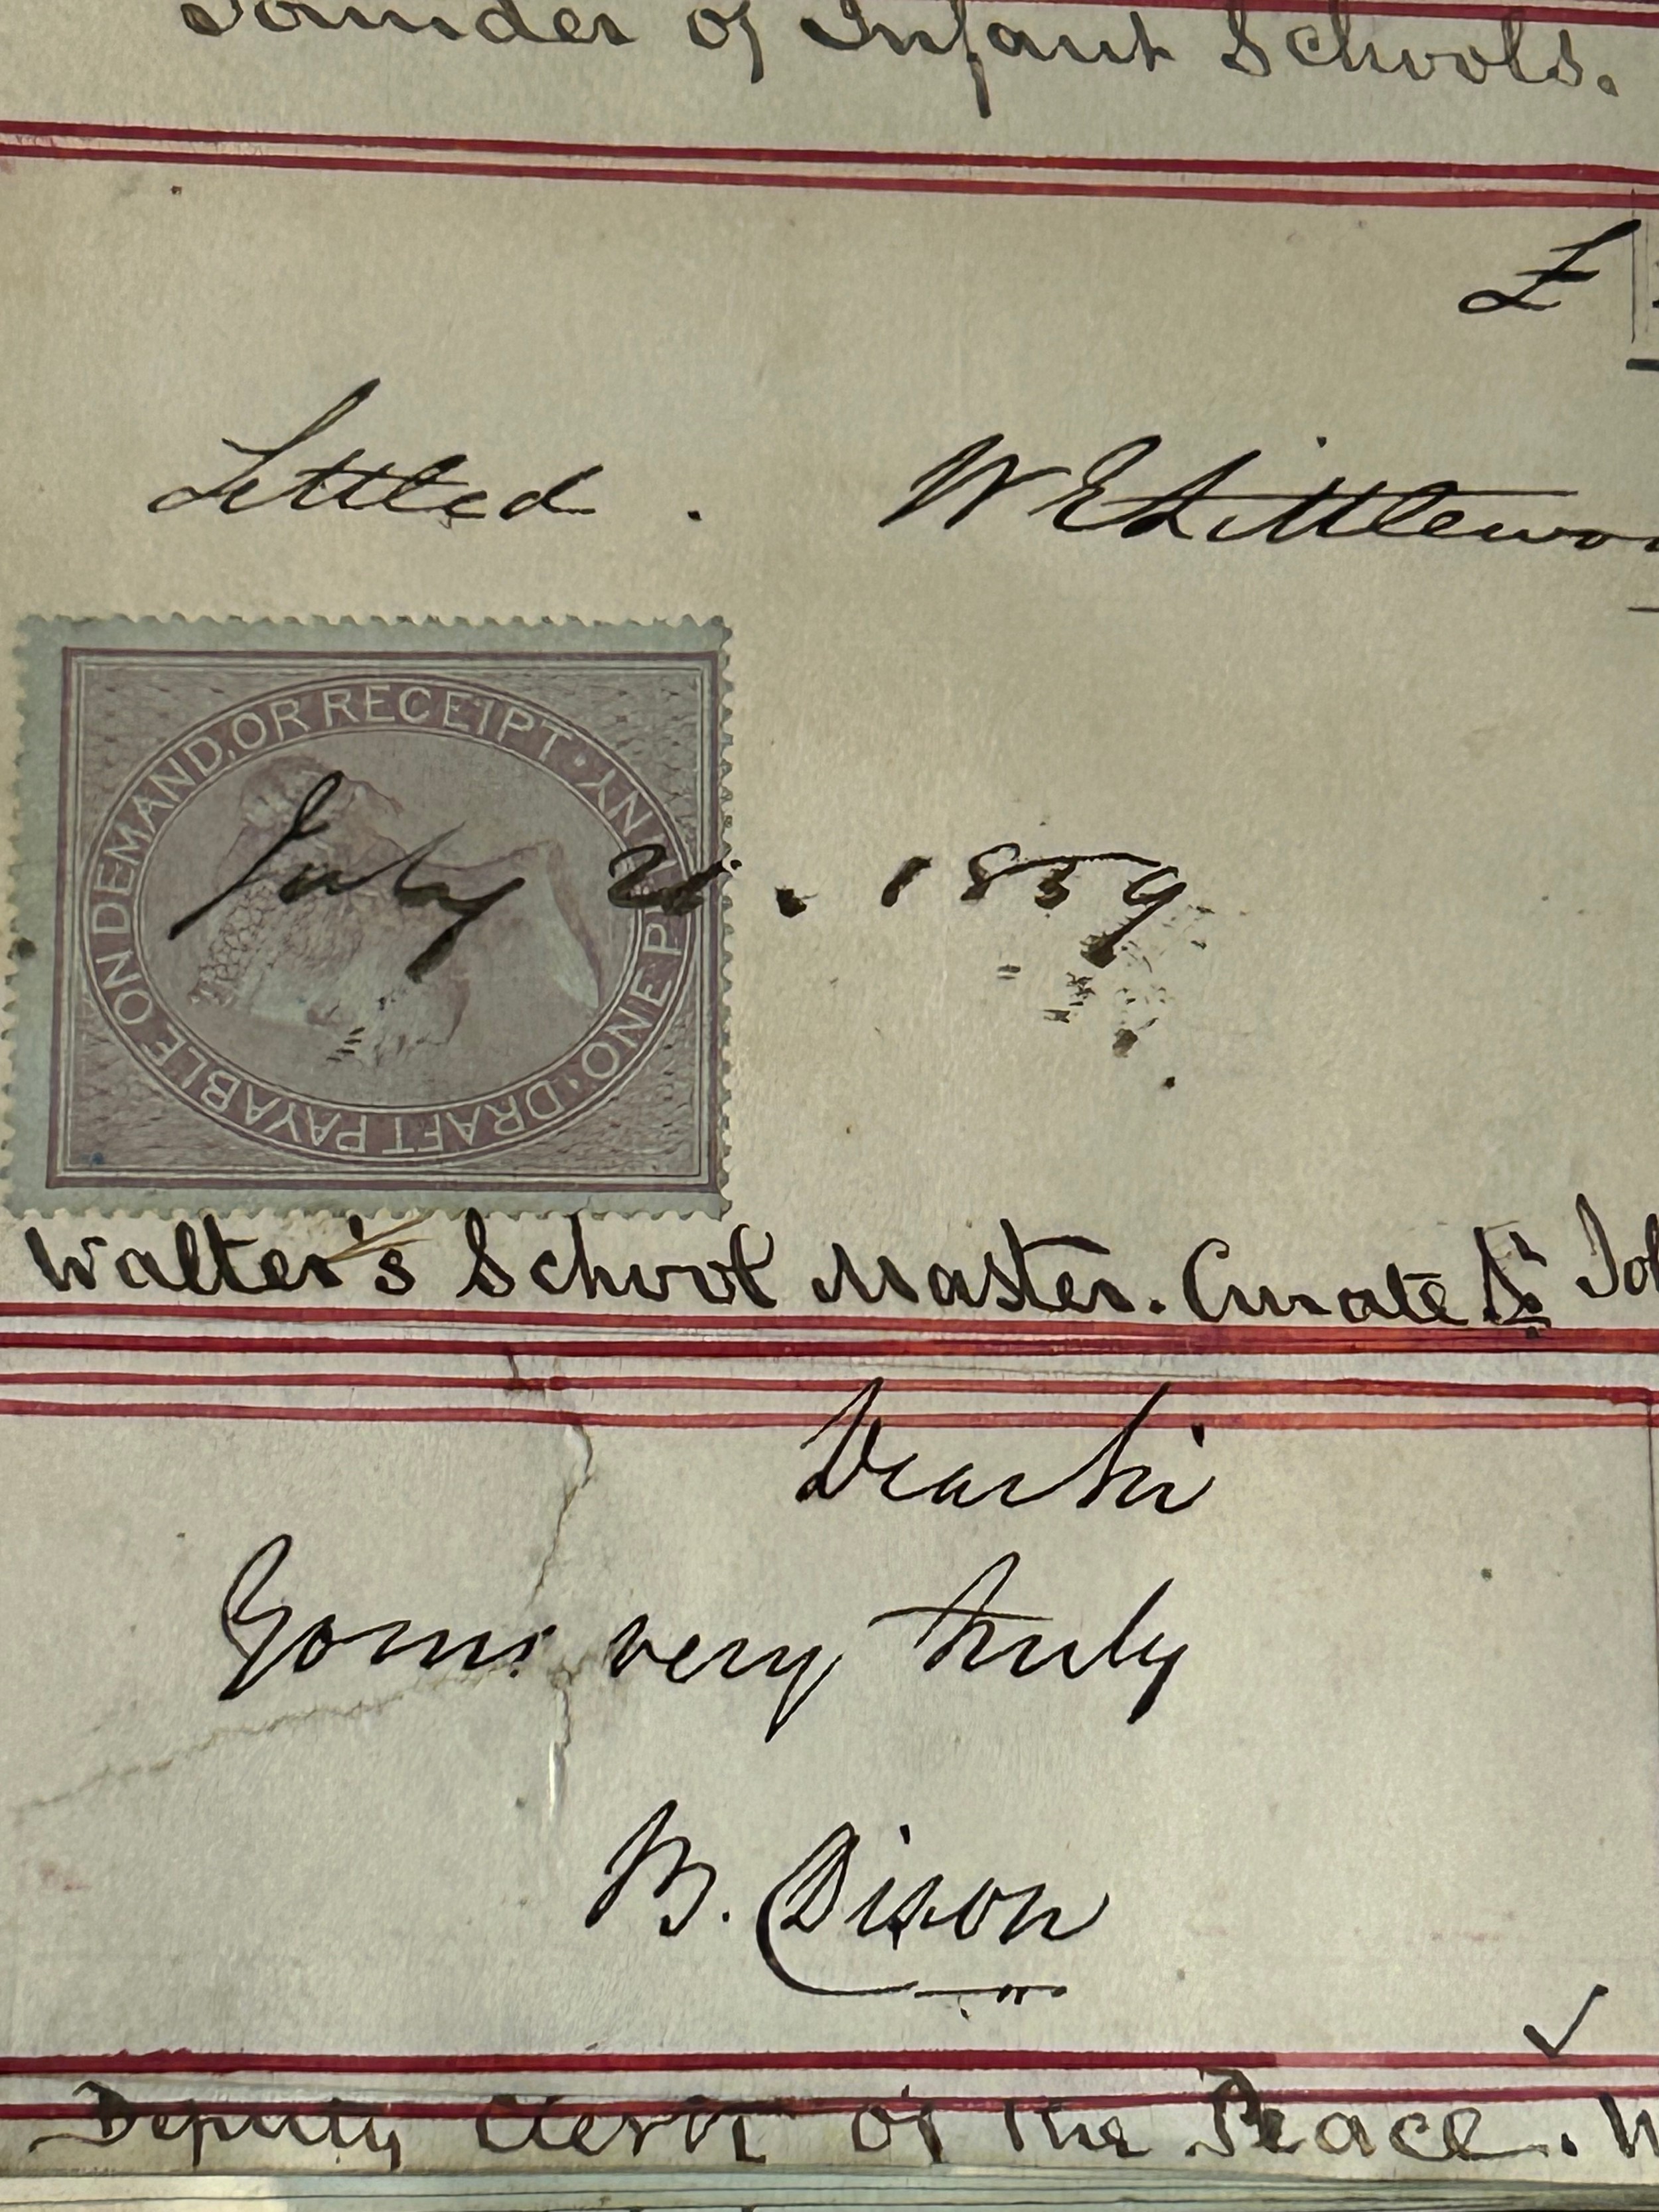 Founder of Infant Schools.
£
Settled. W E Littlewoo
DRAFT PAYABLE ON DEMAND, OR RECEIPT · ONE PENNY ·
July 21. 1859
Walter's School Master. Curate St Joh
Dear Sir
Yours very truly
B. Dixon
Deputy Clerk of the Peace. W